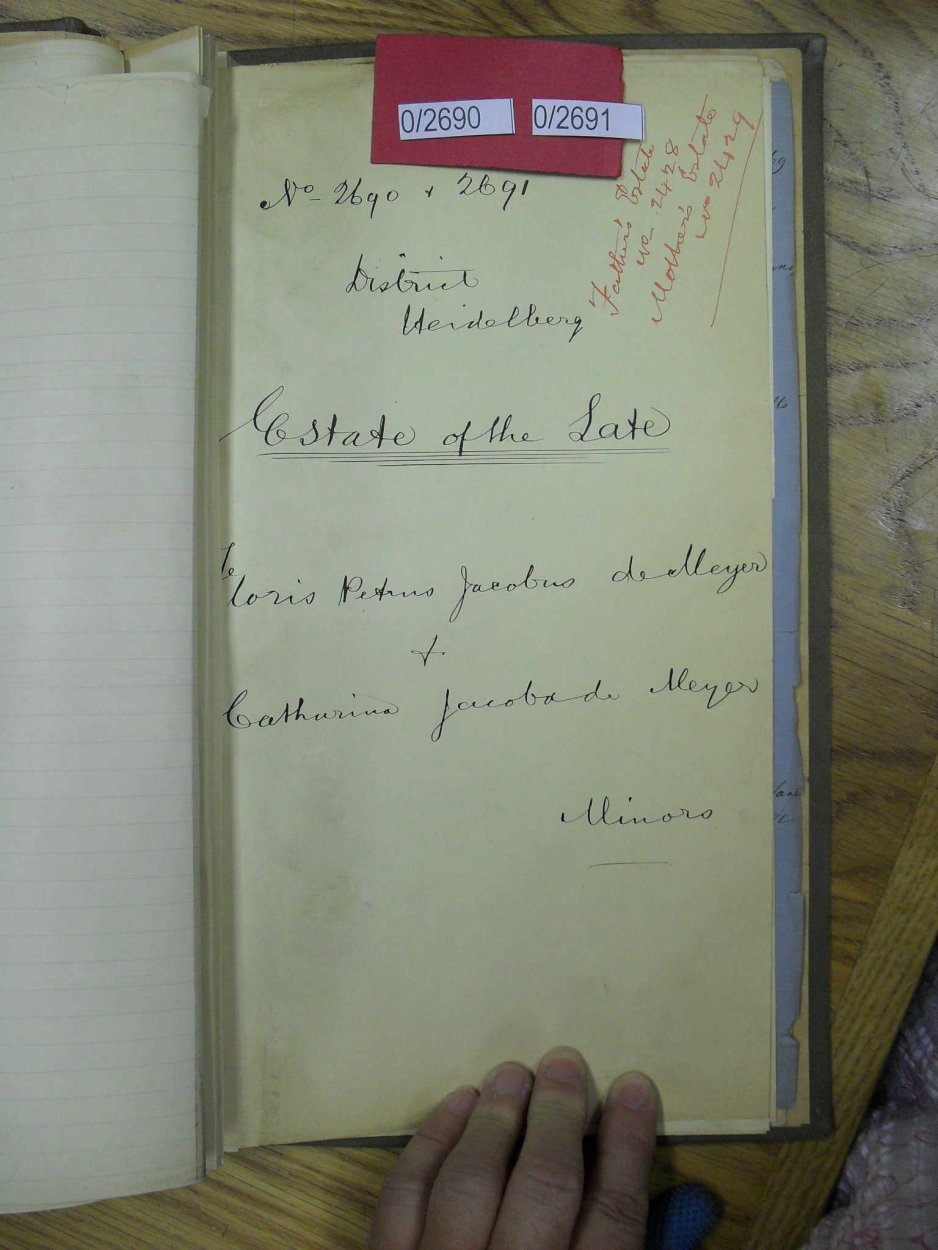 0/2690 0/2691
No 2690 & 2691
Father's Estate
no 2428
Mother's Estate
no 2429
District
Heidelberg
Estate of the Late
Floris Petrus Jacobus de Meyer
&
Catharina Jacoba de Meyer
Minors